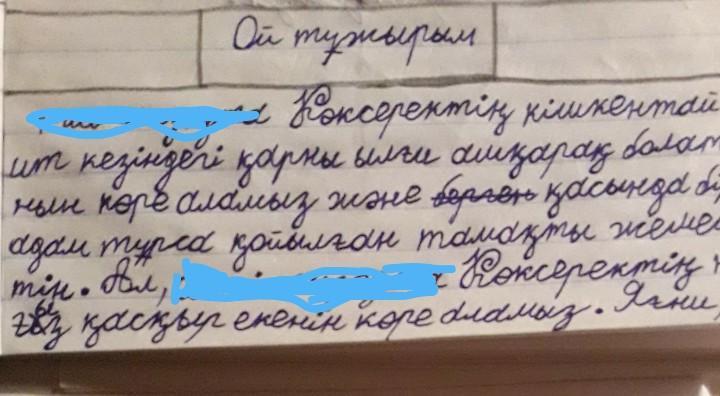 Ой тұжырым
Көксеректің кішкентай
ит кезіндегі қарны ылғи ашқарақ болат
нын көре аламыз және берген қасында бі
адам тұрса қойылған тамақты жеме
тін. Ал, Көксеректің
қасқыр екенін көре аламыз. Яғни,